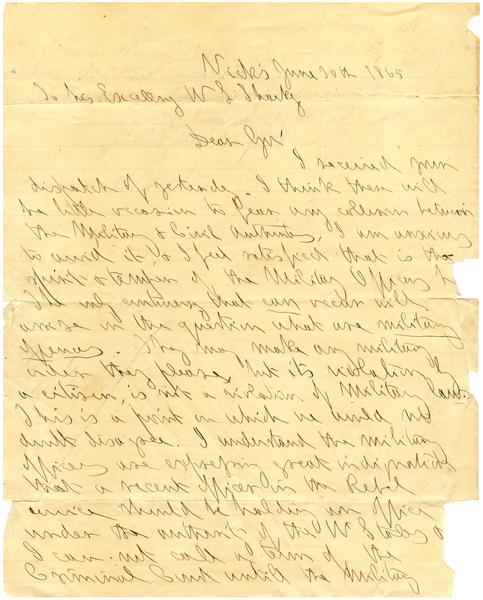 Vicks June 30th 1865
To his Excellency W L Sharkey
Dear Gov
I received your
dispatch of yesterday. I think there will
be little occasion to fear any collision between
the Military & Civil authorities, I am anxious
to avoid it & I feel satisfied that is the
spirit & temper of the Military Officers
The only controversy that can occur will
arise in the question what are military
offences. They may make any military
orders they please, but its violation by
a citizen, is not a violation of Military law.
This is a point on which we would no
doubt disagree. I understand the military
officers are expressing great indignation
that a recent officer in the Rebel
service should be holding an office
under the authority of the U States &
I can not call a term of the
Criminal Court until the Military